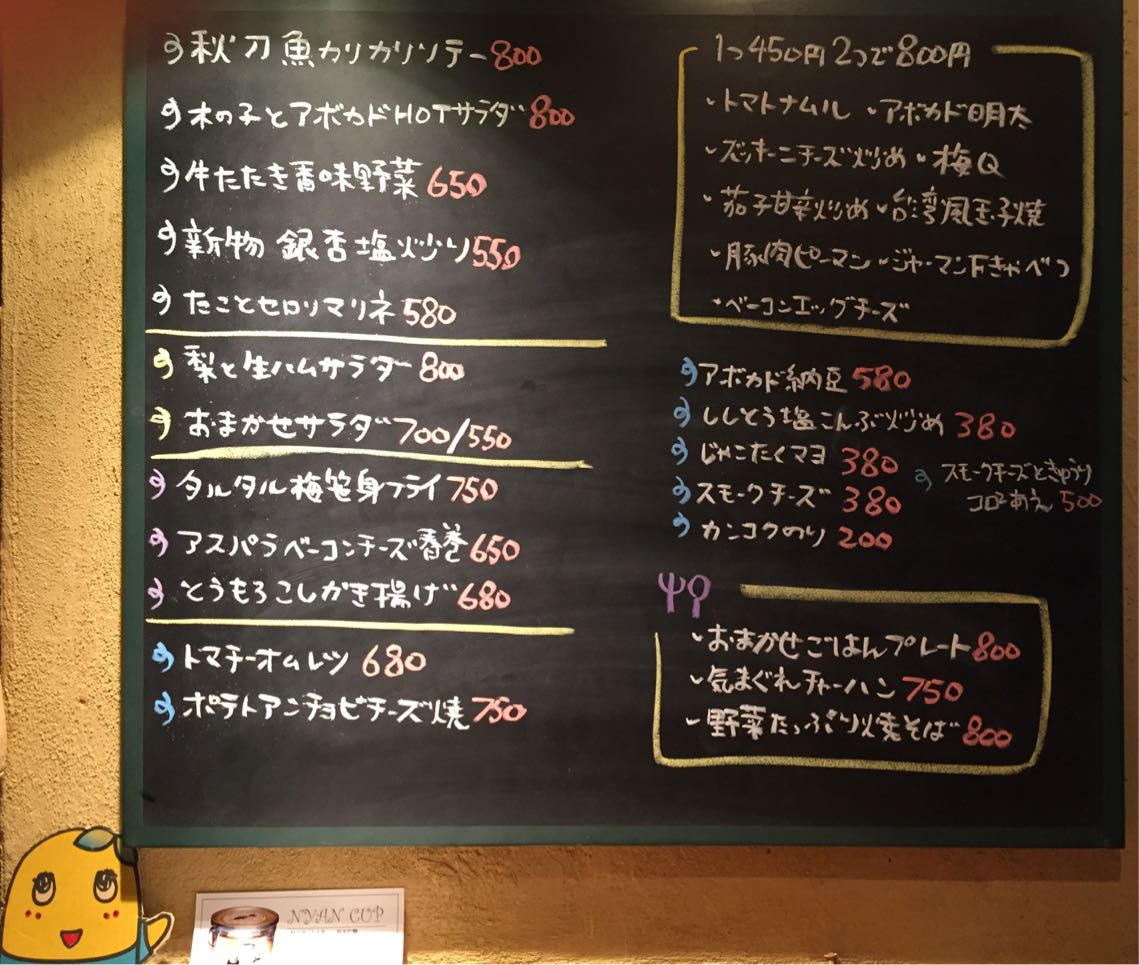 秋刀魚カリカリソテー 800
木の子とアボカドHOTサラダ 800
牛たたき香味野菜 650
新物 銀杏塩炒り 550
たことセロリマリネ 580
梨と生ハムサラダー 800
おまかせサラダ 700/550
タルタル梅笹身フライ 750
アスパラベーコンチーズ春巻 650
とうもろこしかき揚げ 680
トマチーオムレツ 680
ポテトアンチョビチーズ焼 750
1つ450円2つで800円
・トマトナムル ・アボカド明太
・ズッキーニチーズ炒め ・梅Q
・茄子甘辛炒め ・台湾風玉子焼
・豚肉ピーマン ・ジャーマンFきゃべつ
・ベーコンエッグチーズ
アボカド納豆 580
ししとう塩こんぶ炒め 380
じゃこたくマヨ 380
スモークチーズ 380
カンコクのり 200
スモークチーズときゅうり
あえ 500
・おまかせごはんプレート 800
・気まぐれチャーハン 750
・野菜たっぷり焼そば 800
NYAN CUP